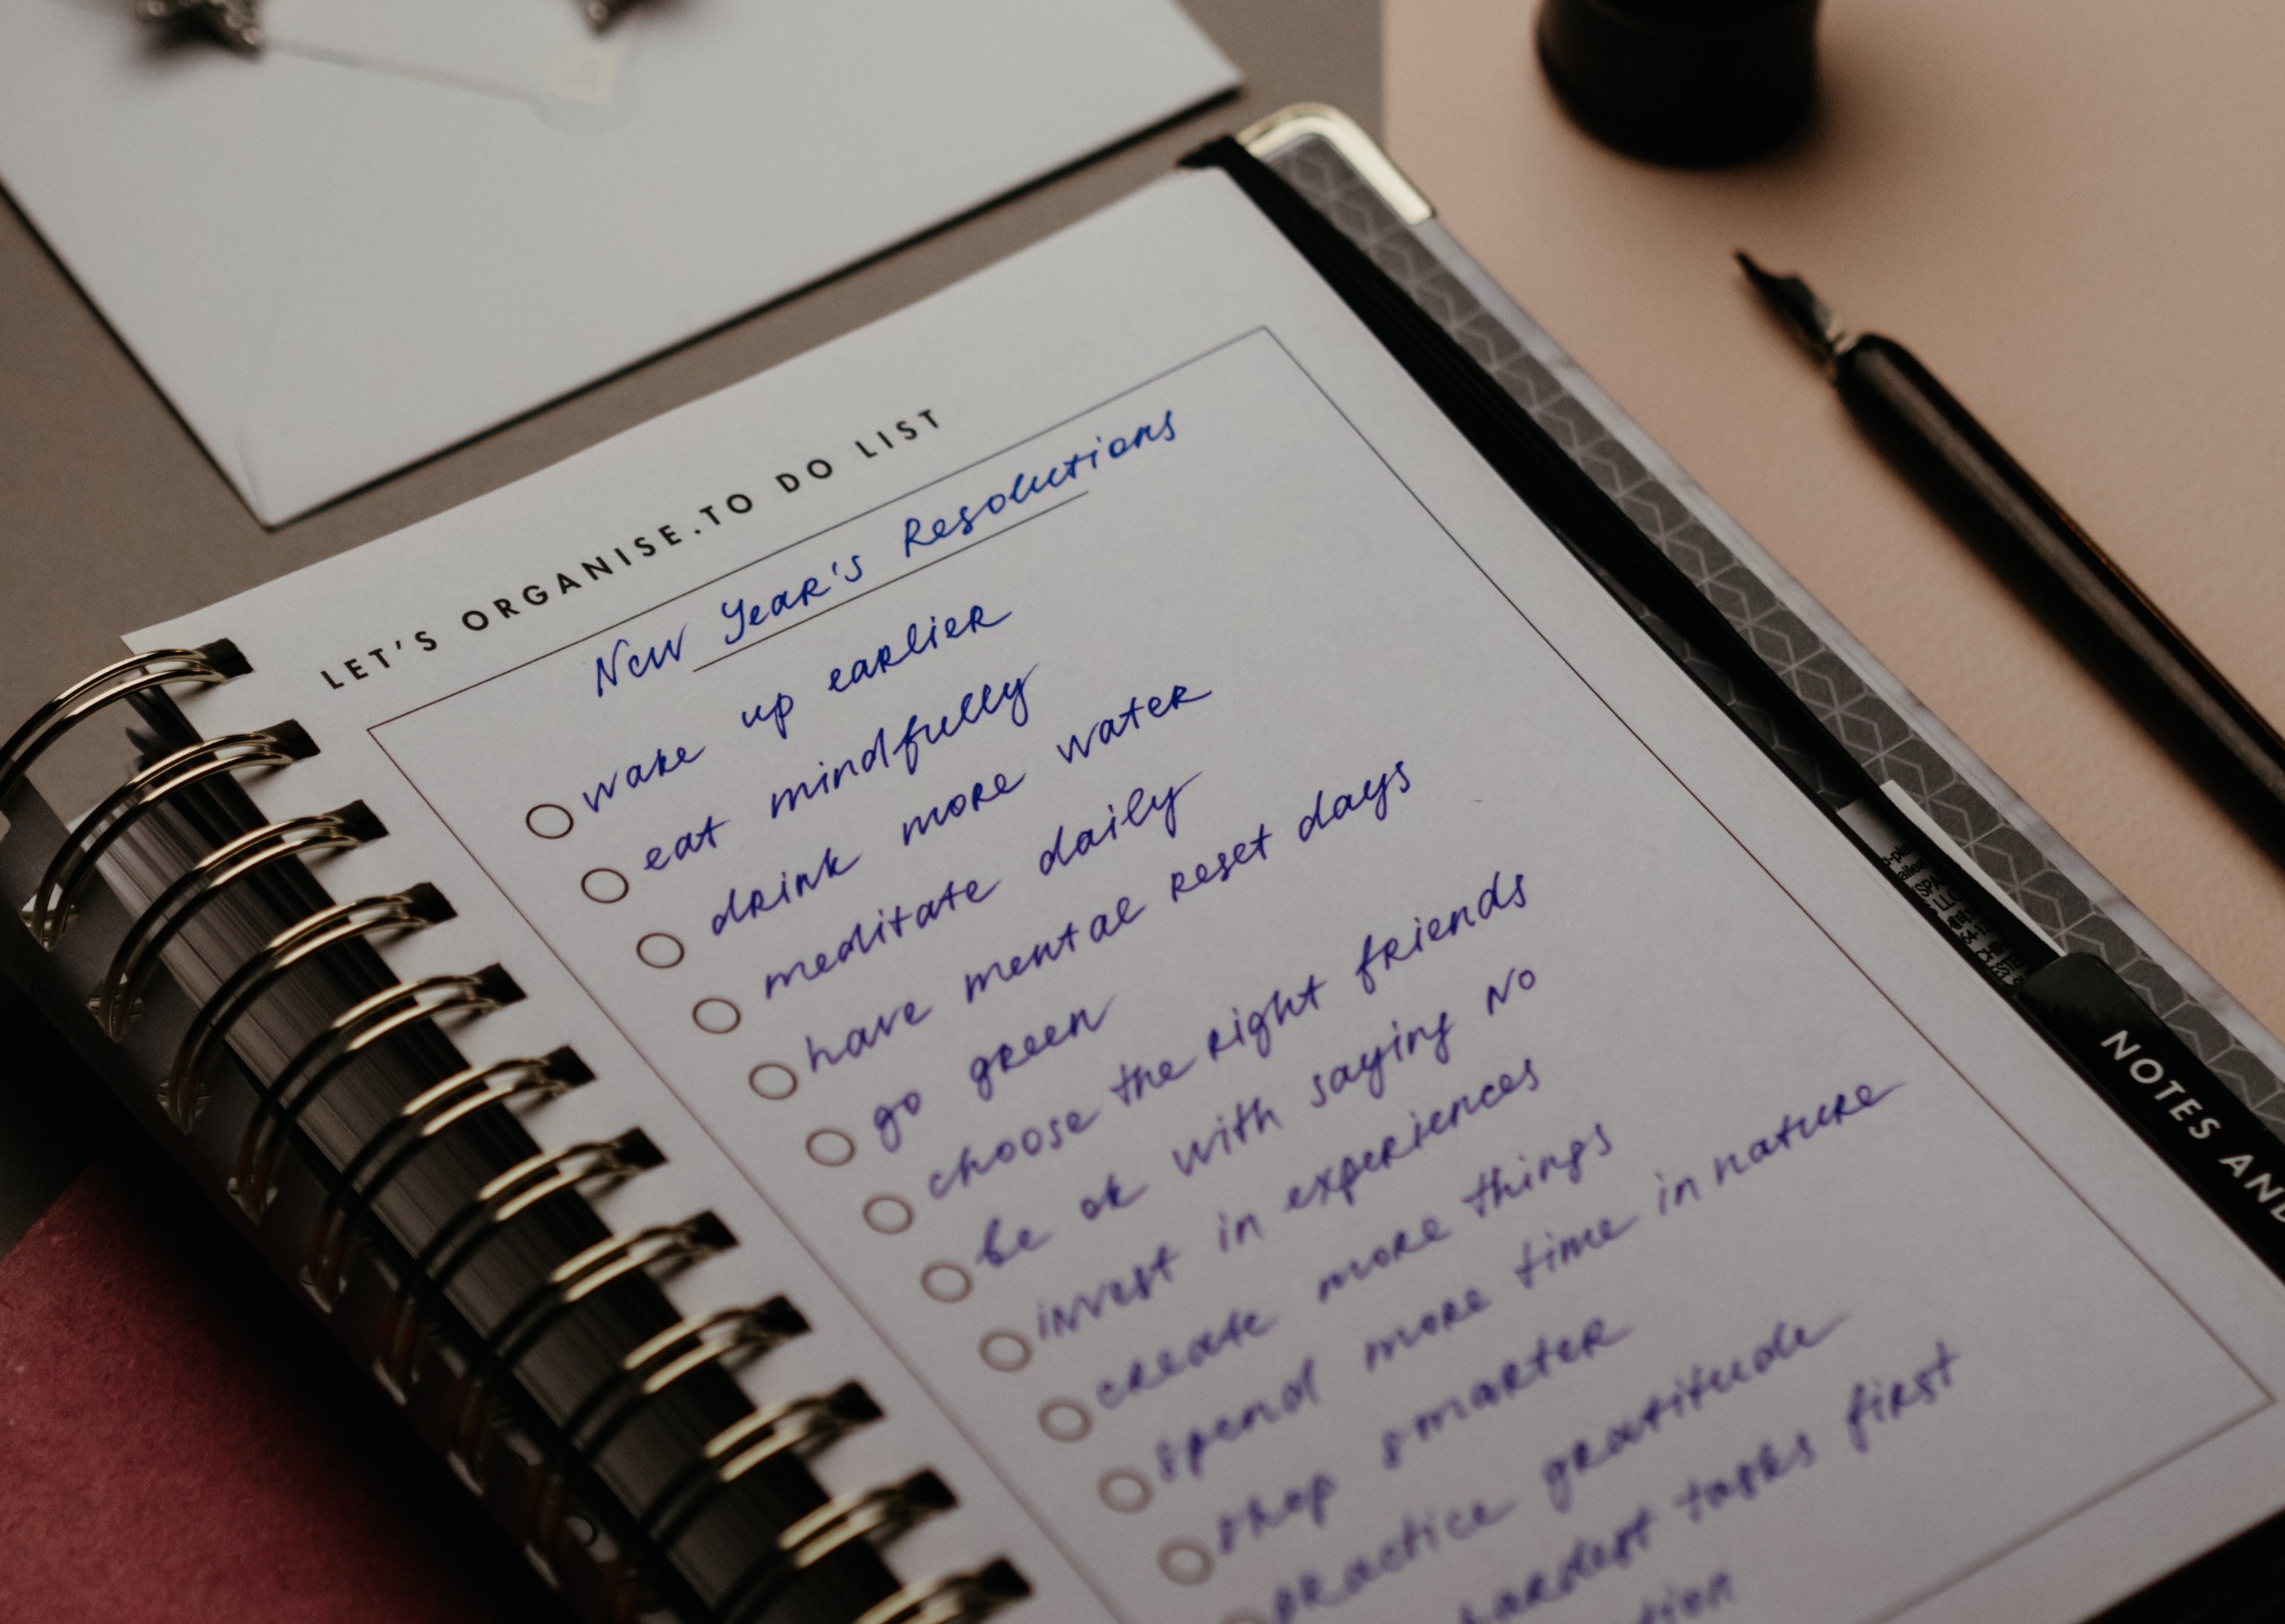 LET'S ORGANISE.TO DO LIST
New Year's Resolutions
wake up earlier
eat mindfully
drink more water
meditate daily
have mental reset days
go green
choose the right friends
be ok with saying NO
invest in experiences
create more things
spend more time in nature
shop smarter
practice gratitude
hardest tasks first
NOTES AND